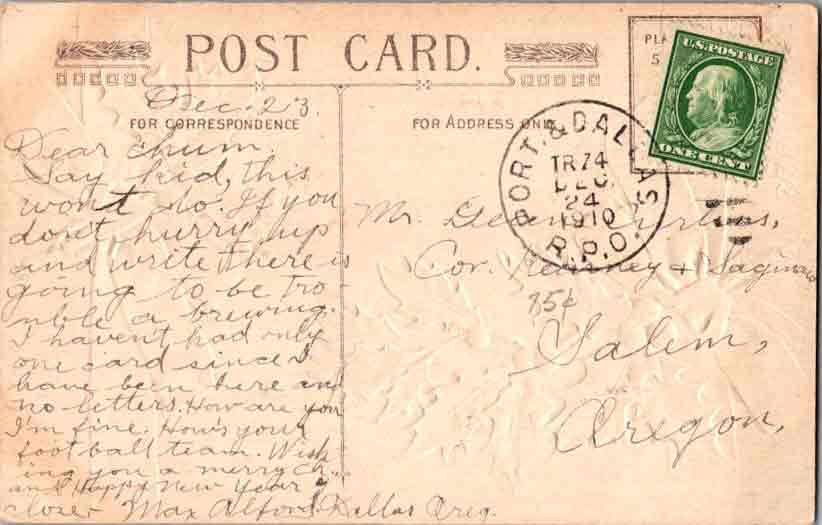 POST CARD.
Dec. 23
FOR CORRESPONDENCE
Dear chum.
Say kid, this
wont do. If you
don't hurry up
and write there is
going to be tro-
uble a brewing.
I havent had only
one card since I
have been here and
no letters. How are you
I'm fine. How's your
football team. Wish
ing you a merry Ch..
and Happy New Year I
close. Max Alford. Dallas Oreg.
FOR ADDRESS ONLY
PORT. & DALLAS
TR74
DEC
24
1910
R.P.O.
U.S. POSTAGE
ONE CENT
Mr.
Cor. Kearney & Saginaw
85¢
Salem,
Oregon.